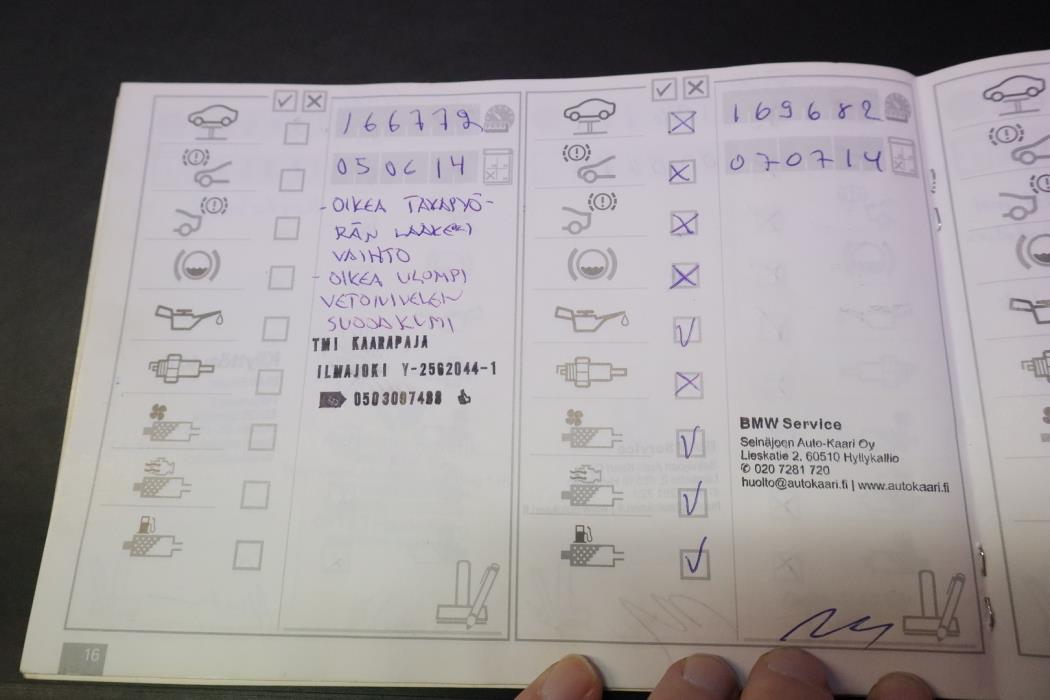 166772
050614
- OIKEA TAKAPYÖ-
RÄN LAAKERI
VAIHTO
- OIKEA ULOMPI
VETONIVELEN
SUOJAKUMI
TMI KAARAPAJA
ILMAJOKI Y-2562044-1
0503007488
169682
070714
BMW Service
Seinäjoen Auto-Kaari Oy
Lieskatie 2, 60510 Hyllykallio
✆ 020 7281 720
huolto@autokaari.fi | www.autokaari.fi
16